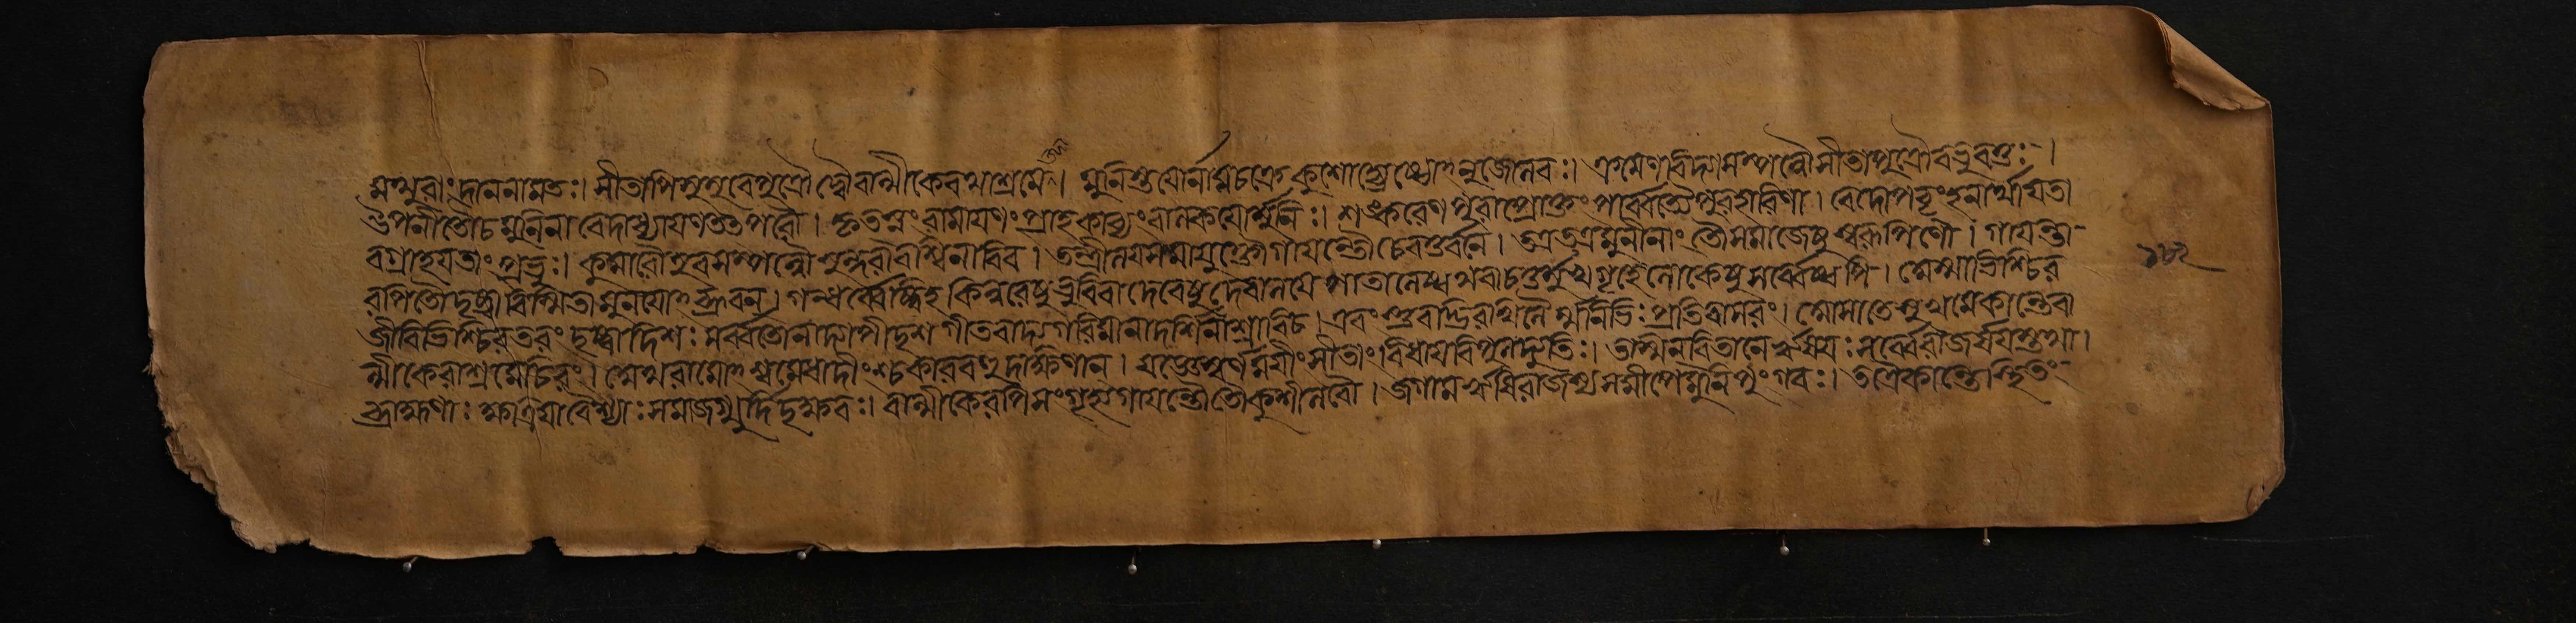 মথুরাং দাননামতঃ। সীতাপি সুষুবে পুত্রৌ দ্বৌ বাল্মীকেরথাশ্রমে। মুনিস্তয়োর্নাম চক্রে কুশো জ্যেষ্ঠোঽনুজো লবঃ। ক্রমেণ বিদ্যাসম্পন্নৌ সীতাপুত্রৌ বভূবতুঃ-।
উপনীতৌ চ মুনিনা বেদাধ্যয়ণতৎপরৌ। কৃৎস্নং রামায়ণং প্রাহ কাব্যং বালকয়োর্ম্মুনিঃ। শঙ্করেণ পুরা প্রোক্তং পার্ব্বত্যৈ পুরহারিণা। বেদোপবৃংহনার্থায় তা
বগ্রাহয়ত প্রভুঃ। কুমারৌ সুরসম্পন্নৌ সুন্দরাবশ্বিনাবিব। তন্ত্রীলয়সমাযুক্তৌ গায়ন্তৌ চেরতুর্বনে। তত্র তত্র মুনীনাং তৌ সমাজেষু সুরূপিণৌ। গায়ন্তা-
বভিতো দৃষ্ট্বা বিস্মিতা মুনয়োঽব্রুবন্। গন্ধর্ব্বেষ্বিহ কিন্নরেষু ভুবি বা দেবেষু দেবালয়ে পাতালেষ্বথবা চতুর্ম্মুখগৃহে লোকেষু সর্ব্বেষ্বপি-। অস্মাভিশ্চির
জীবিভিশ্চিরতরং দৃষ্ট্বা দিশঃ সর্ব্বতো নাজ্ঞায়ীদৃশ গীতবাদ্যগরিমা নাদর্শি নাশ্রাবি চ। এবং স্তুবদ্ভিরখিলৈর্মুনিভিঃ প্রতিবাসরং। আসাতে সুখমেকান্তে বা
ল্মীকেরাশ্রমে চিরং। অথ রামোঽশ্বমেধাদীংশ্চকার বহুদক্ষিণান্। যজ্ঞে স্বর্ণময়ীং সীতাং বিধায় বিপুলদ্যুতিঃ। তস্মিন্ বিতানে ঋষয়ঃ সর্ব্বে রাজর্ষয়স্তথা।
ব্রাহ্মণাঃ ক্ষত্রিয়া বৈশ্যাঃ সমাজগ্মুর্দিদৃক্ষবঃ। বাল্মীকিরপি সংগৃহ্য গায়ন্তৌ তৌ কুশীলবৌ। জগাম ঋষিরাজস্য সমীপে মুনিপুংগবঃ। তত্রৈকান্তে স্থিতং-